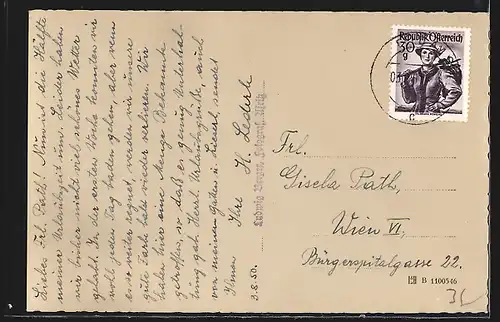 Liebes Frl. Path! Nun ist die Hälfte
meiner Urlaubszeit um. Leider haben
wir bisher nicht viel schönes Wetter
gehabt. In der ersten Woche konnten wir
wohl jeden Tag baden gehen, aber wenn
es so weiter regnet, werden wir unsere
gute Farbe bald wieder verlieren. Wir
haben hier eine Menge Bekannte
getroffen, so daß es genug Unterhal-
tung gab. Herzl. Urlaubsgrüße, auch
von meinem Gatten u. Lieserl, sendet
Ihnen Ihre H. Lederh
3.8.50.
Ludwig Fotograf.
Republik Österreich
30
g
Frl.
Gisela Path,
Wien VI,
Bürgerspitalgasse 22.
B 1100546